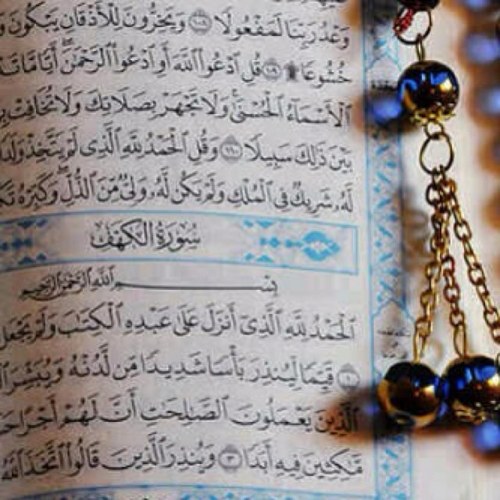 وَعْدُ رَبِّنَا لَمَفْعُولًا ۝١٠٨ وَيَخِرُّونَ لِلْأَذْقَانِ يَبْكُونَ وَ
خُشُوعًا ۩ ۝١٠٩ قُلِ ٱدْعُوا۟ ٱللَّهَ أَوِ ٱدْعُوا۟ ٱلرَّحْمَٰنَ ۖ أَيًّا مَّا تَ
ٱلْأَسْمَآءُ ٱلْحُسْنَىٰ ۚ وَلَا تَجْهَرْ بِصَلَاتِكَ وَلَا تُخَافِتْ بِ
بَيْنَ ذَٰلِكَ سَبِيلًا ۝١١٠ وَقُلِ ٱلْحَمْدُ لِلَّهِ ٱلَّذِى لَمْ يَتَّخِذْ وَلَدًا
لَّهُۥ شَرِيكٌ فِى ٱلْمُلْكِ وَلَمْ يَكُن لَّهُۥ وَلِىٌّ مِّنَ ٱلذُّلِّ ۖ وَكَبِّرْهُ تَكْ
سُورَةُ الكَهْفِ
بِسْمِ ٱللَّهِ ٱلرَّحْمَٰنِ ٱلرَّحِيمِ
ٱلْحَمْدُ لِلَّهِ ٱلَّذِىٓ أَنزَلَ عَلَىٰ عَبْدِهِ ٱلْكِتَٰبَ وَلَمْ يَجْعَل
۝١ قَيِّمًا لِّيُنذِرَ بَأْسًا شَدِيدًا مِّن لَّدُنْهُ وَيُبَشِّرَ ٱلْ
ٱلَّذِينَ يَعْمَلُونَ ٱلصَّٰلِحَٰتِ أَنَّ لَهُمْ أَجْرًا حَ
مَّٰكِثِينَ فِيهِ أَبَدًا ۝٣ وَيُنذِرَ ٱلَّذِينَ قَالُوا۟ ٱتَّخَذَ ٱللَّهُ